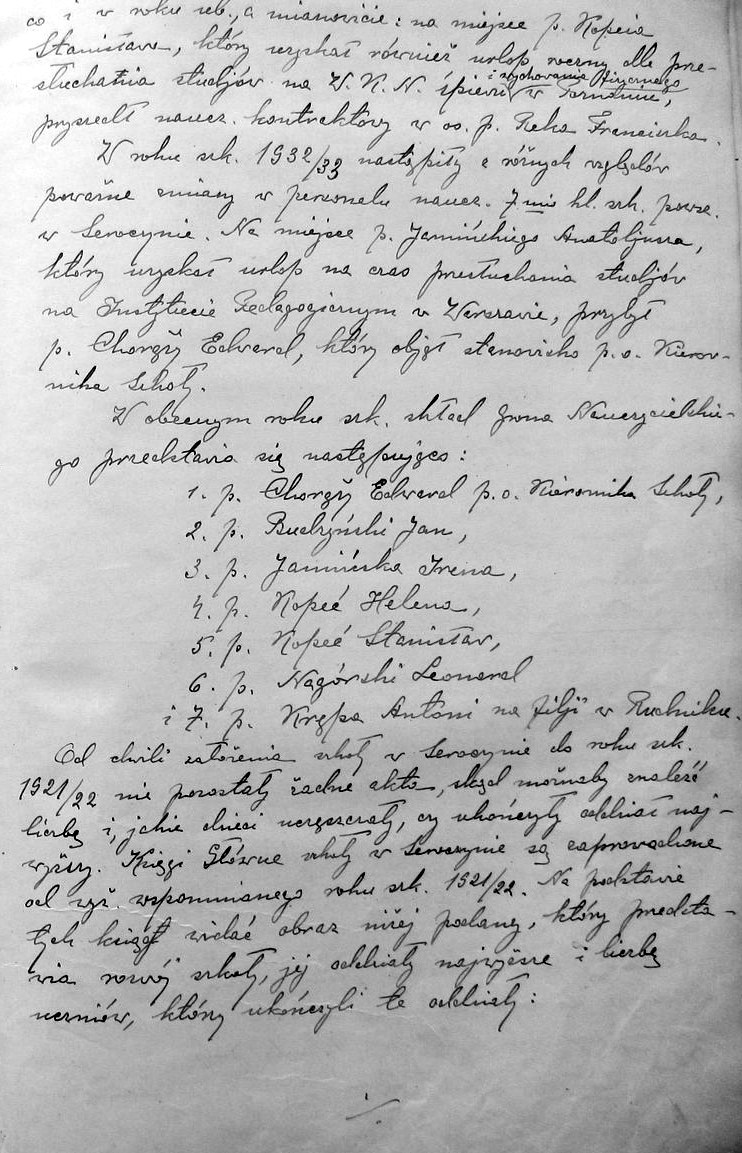 co i w roku ub., a mianowicie: na miejsce p. Kopcia
Stanisława, który uzyskał również urlop roczny dla prze-
słuchania studjów na W. K. N. śpiewu i wychowania fizycznego w Toruniu,
przyszedł naucz. kontraktowy w os. p. Reka Franciszka.
W roku szk. 1932/33 nastąpiły z różnych względów
poważne zmiany w personelu naucz. 7 mio kl. szk. powsz.
w Seroczynie. Na miejsce p. Jamińskiego Anatoljusza,
który uzyskał urlop na czas przesłuchania studjów
na Instytucie Pedagogicznym w Warszawie, przybył
p. Chorąży Edward, który objął stanowisko p. o. Kierow-
nika Szkoły.
W obecnym roku szk. skład Grona Nauczycielskie-
go przedstawia się następująco:
1. p. Chorąży Edward p. o. Kierownika Szkoły,
2. p. Budzyński Jan,
3. p. Jamińska Irena,
4. p. Kopeć Helena,
5. p. Kopeć Stanisław,
6. p. Nagórski Leonard
i 7. p. Krępa Antoni na filji w Rudniku.
Od chwili założenia szkoły w Seroczynie do roku szk.
1921/22 nie pozostały żadne akta, skąd możnaby znaleźć
liczbę i, jakie dzieci uczęszczały, czy ukończyły oddział naj-
wyższy. Księgi Główne szkoły w Seroczynie są zaprowadzone
od wyż. wspomnianego roku szk. 1921/22. Na podstawie
tych ksiąg widać obraz niżej podany, który przedsta-
wia rozwój szkoły, jej oddziały najwyższe i liczbę
uczniów, który ukończyli te oddziały: